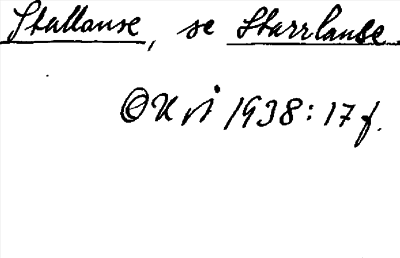 Stallanse, se Starrlanse.
ÖKvj 1938: 17 f.